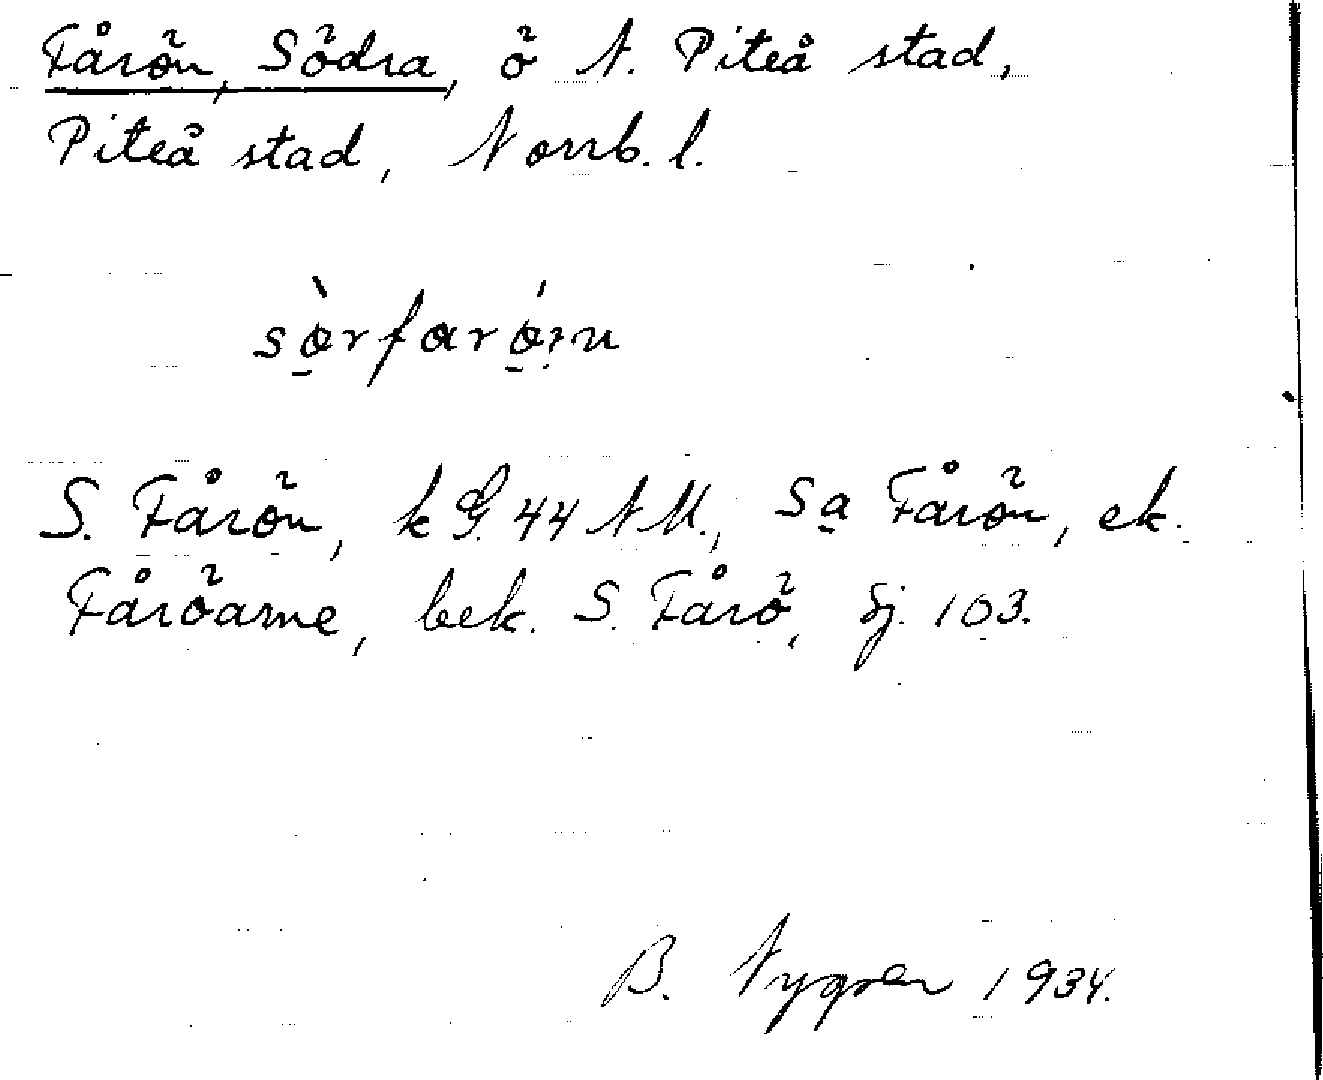 Fårön, Södra, ö N. Piteå stad,
Piteå stad, Norrb. l.
sø̀rfarǿn
S. Fårön, k G. 44 N M., Sa Fårön, ek.
Fåröarne, bek. S. Fårö, Sj. 103.
B. Nygren 1934.